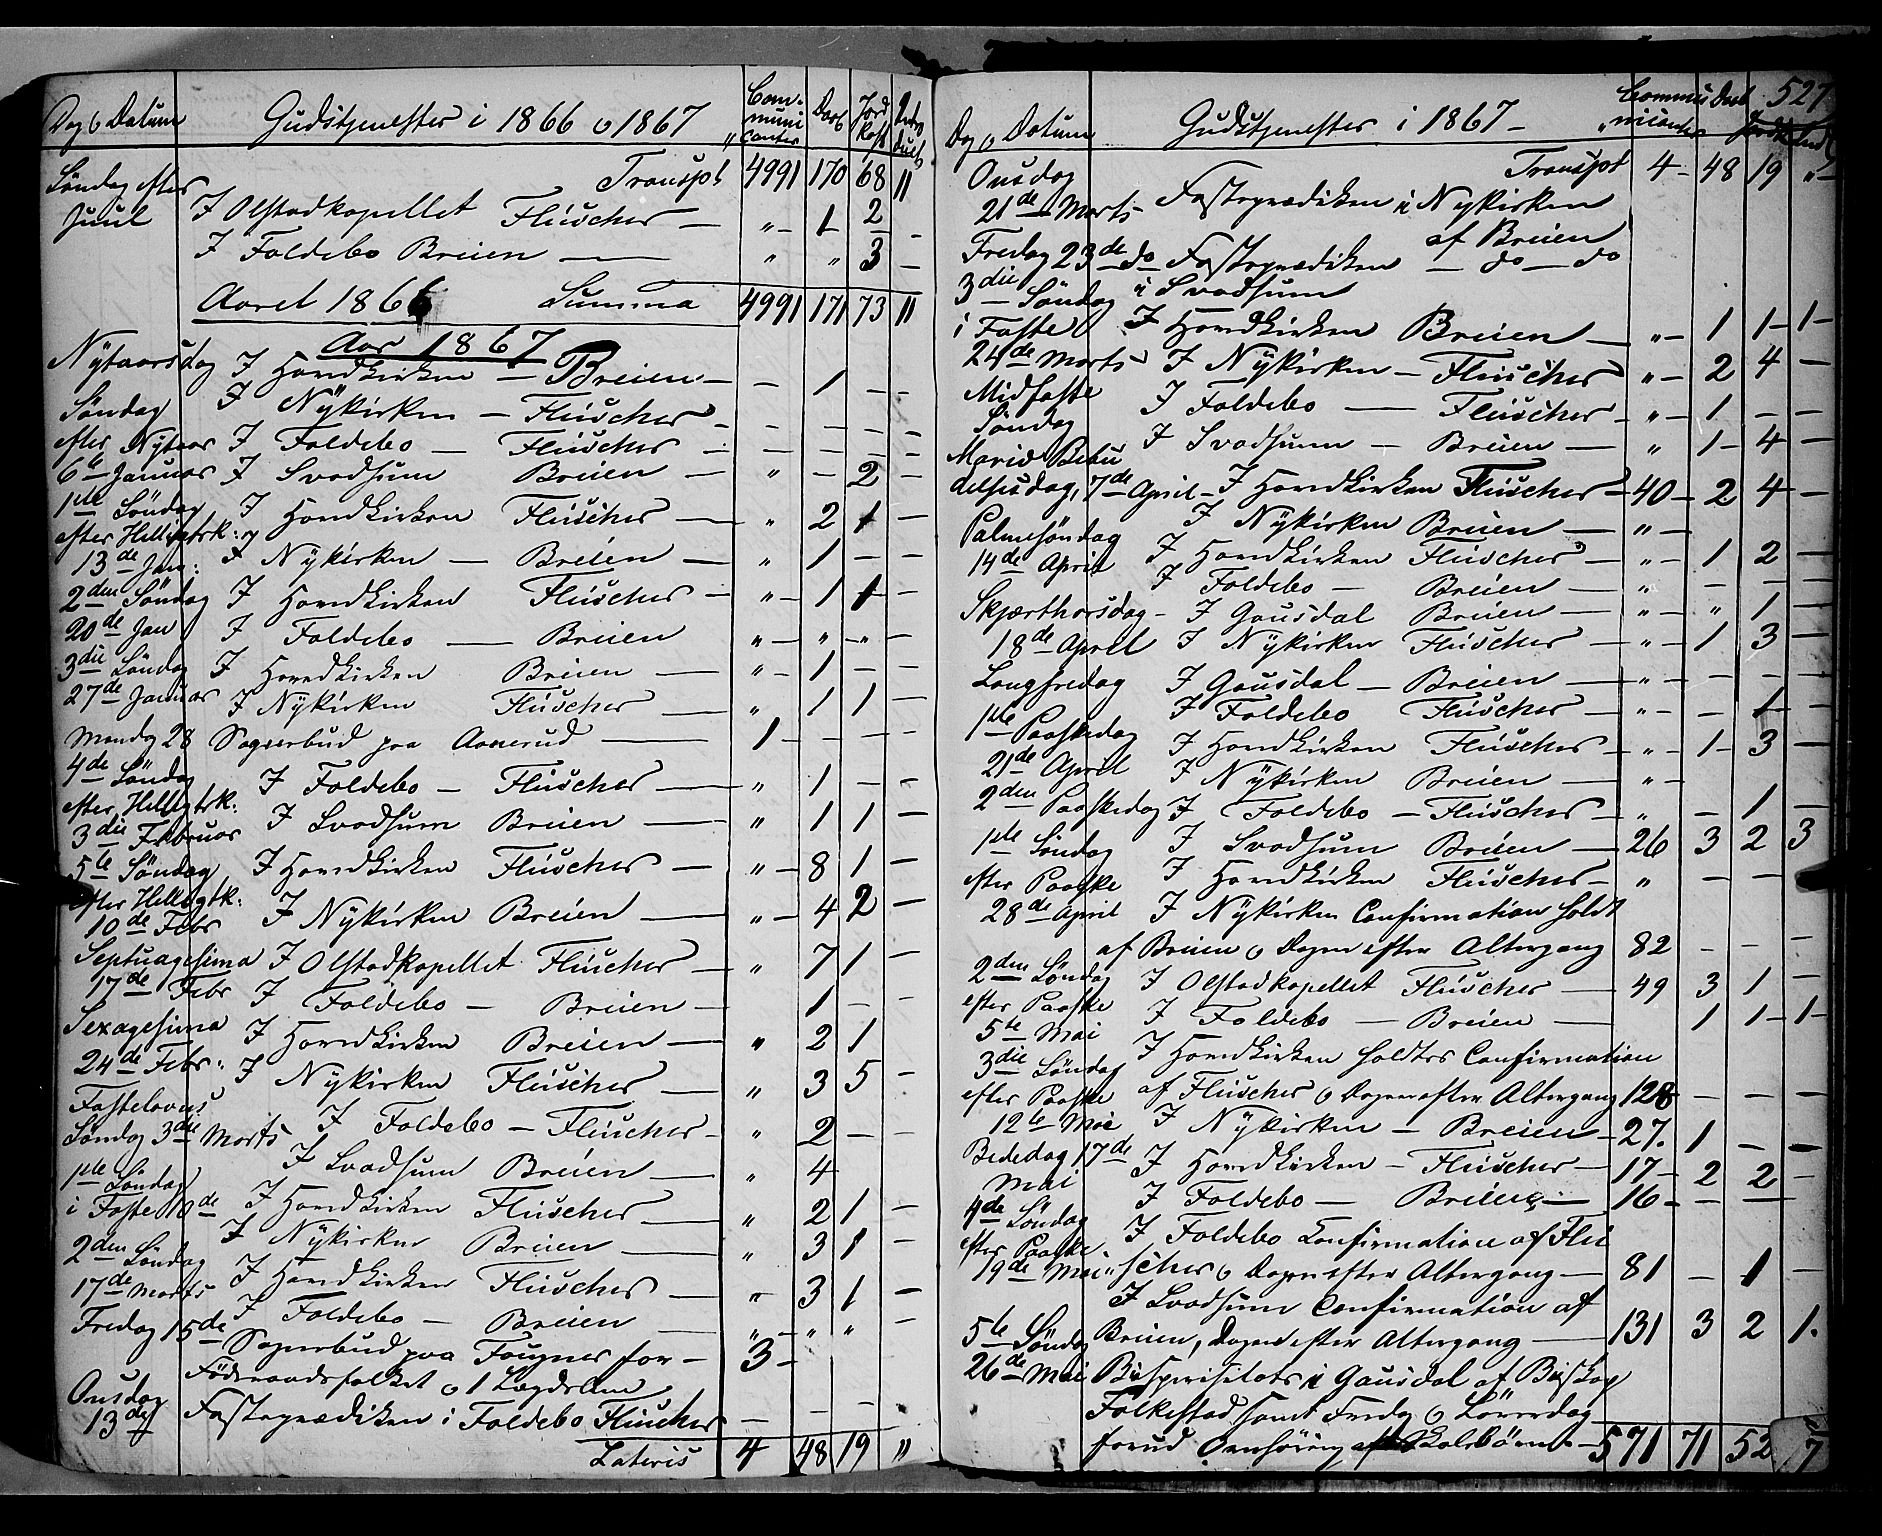 Dag o Datum Gudstjenester i 1866 o 1867 Com- muni canter Daab Jord kast
Transpt 4991 170 68 11
Søndag efter
Juul J Olstadkapellet Fleischer — „ — 1 2 —
J Foldebo Breien — „ „ 3 —
Aaret 1866 Summa 4991 171 73 11
Aar 1867
Nytaarsdag J Hovedkirken — Breien — — 1 — —
J Nykirken — Fleischer — — — — —
Søndag
efter Nytaar J Foldebo — Fleischer — — — — —
6te Januar J Svadsum Breien — „ — 2 —
1ste Søndag J Hovedkirken Fleischer — „ 2 1 —
efter Helligtrk:
13de Jan: J Nykirken — Breien — „ 1 — —
2den Søndag J Hovedkirken Fleischer — „ — 1 1 —
20de Jan J Foldebo — Breien „ — „ — „ —
3die Søndag J Hovedkirken Breien — „ — 1 — —
27de Januar J Nykirken Fleischer — „ 1 1 —
Mandag 28 Sognebud paa Aanerud — 1 — — —
4de Søndag J Foldebo — Fleischer — „ 1 — —
efter Helligtrk:
3die Februar J Svadsum Breien — „ 1 1 —
5te Søndag J Hovedkirken Fleischer — „ — 8 1 —
efter Helligtk:
10de Febr J Nykirken Breien — „ — 4 2 —
Septuagesima J Olstadkapellet Fleischer — „ 7 1 —
17de Febr J Foldebo — Breien — 1 — —
Sexagesima J Hovedkirken Breien — „ 2 1
24de Febr: J Nykirken Fleischer — „ 3 5 —
Fastelavns
Søndag 3die Marts J Foldebo — Fleischer — „ 2 — —
J Svadsum Breien — „ 4
1ste Søndag
i Faste 10de J Hovedkirken Fleischer — „ 2 1 —
J Nykirken Breien — „ 3 1 —
2den Søndag
17de Marts J Hovedkirken Fleischer — „ 3 1 —
J Foldebo — Breien — „ — „ „ —
Fredag 15de Sognebud paa Fougner for — 3 —
Föderaadsfolket o 1 Lægdslem
Onsdag
13de Fasteprædiken i Foldebo Fleischer — — — —
Lateris 4 48 19 „
527
Dag o Datum Gudstjenester i 1867 — Commu nicanter Daab Jordk
Transpt 4 — 48 19 „ —
Onsdag
21de Marts — Fasteprædiken i Nykirken
af Breien
Fredag 23de do Fasteprædiken — do — do
i Svadsum
3die Søndag
i Faste J Hovedkirken Breien — „ — 1 1 — 1 —
24de Marts J Nykirken — Fleischer — „ — 2 4 —
Midfaste
Søndag J Foldebo — Fleischer — „ — 1 — —
J Svadsum — Breien — „ 1 — 4 —
Mariæ Bebu
delsesdag, 7de April — J Hovedkirken Fleischer — 40 — 2 4 —
J Nykirken Breien — „ —
Palmesøndag
14de April J Hovedkirken Fleischer — „ — 1 2 —
J Foldebo — Breien — „ — — —
Skjærthorsdag — J Gausdal Breien — „ — „ 1 —
18de April J Nykirken Fleischer — „ — 1 3 —
Langfredag J Gausdal — Breien — „ — — — —
J Foldebo Fleischer — „ — — 1 —
1ste Paaskedag J Hovedkirken Fleischer — „ — 1 — 3 —
21de April J Nykirken Breien — „ —
2den Paaskedag J Foldebo — Fleischer — „ — 1 —
1ste Søndag J Svadsum Breien — 26 3 2 3
efter Paaske J Hovedkirken Fleischer — „ — — —
28de April J Nykirken Confirmation holdt
af Breien o Dagen efter Altergang 82 — — —
2den Søndag J Olstadkapellet Fleischer — 49 3 1 —
efter Paaske
5te Mai J Foldebo — Breien — 1 1 — 1 —
3die Søndag J Hovedkirken holdtes Confirmation
efter Paaske af Fleischer o Dagen efter Altergang 128 — — —
12te Mai J Nykirken — Breien — 27. 1 — —
Bededag 17de
Mai J Hovedkirken — Fleischer — 17 — 2 2 —
J Foldebo — Breien — 16 — — —
4de Søndag
efter Paaske J Foldebo Confirmation af Flei
19de Mai scher o Dagen efter Altergang — 81 — 1 —
J Svadsum Confirmation af
5te Søndag Breien, Dagen efter Altergang — 131 3 2 1.
26de Mai Bispevisitats i Gausdal af Biskop
Folkestad samt Fredag o Løverdag
forud Overhøring af Skolebörn — 571 71 52 7